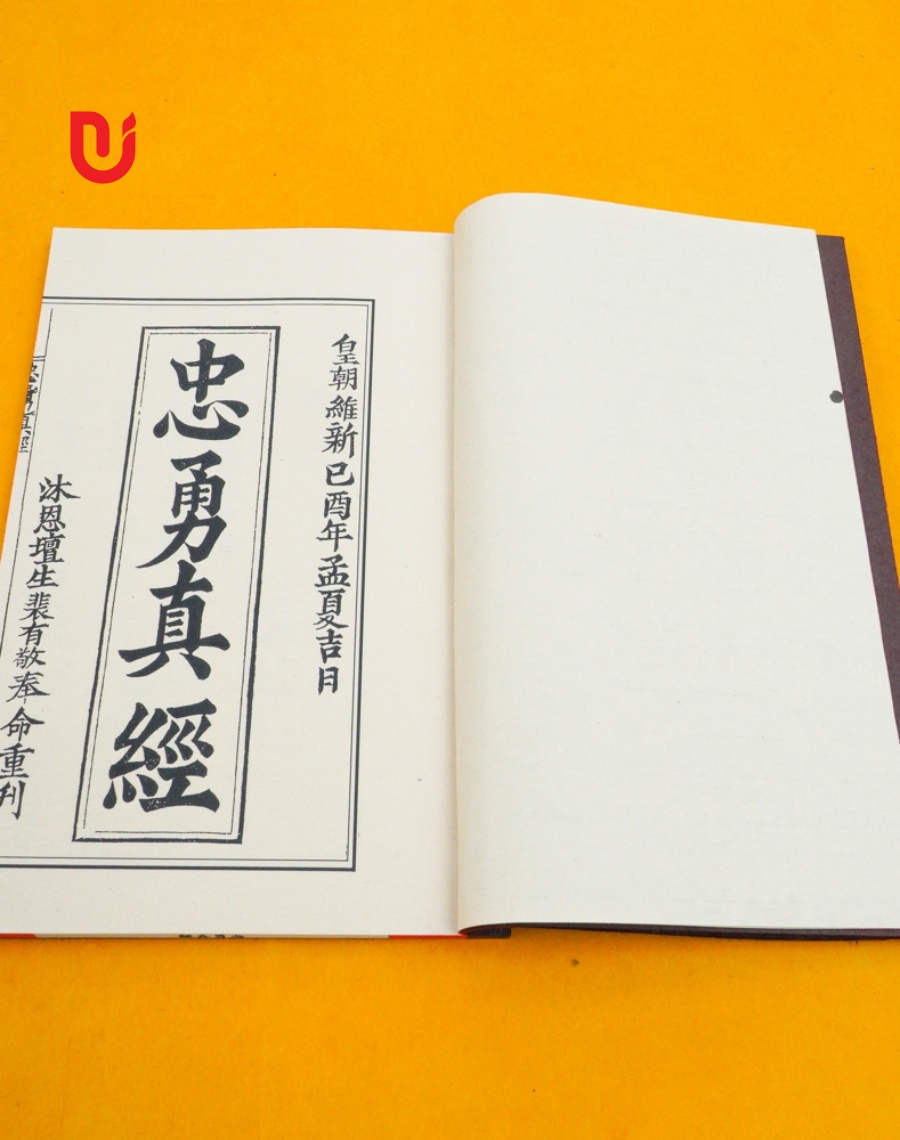 皇朝維新己酉年孟夏吉日
忠勇真經
沐恩壇生裴有敬奉命重刊
忠勇真經